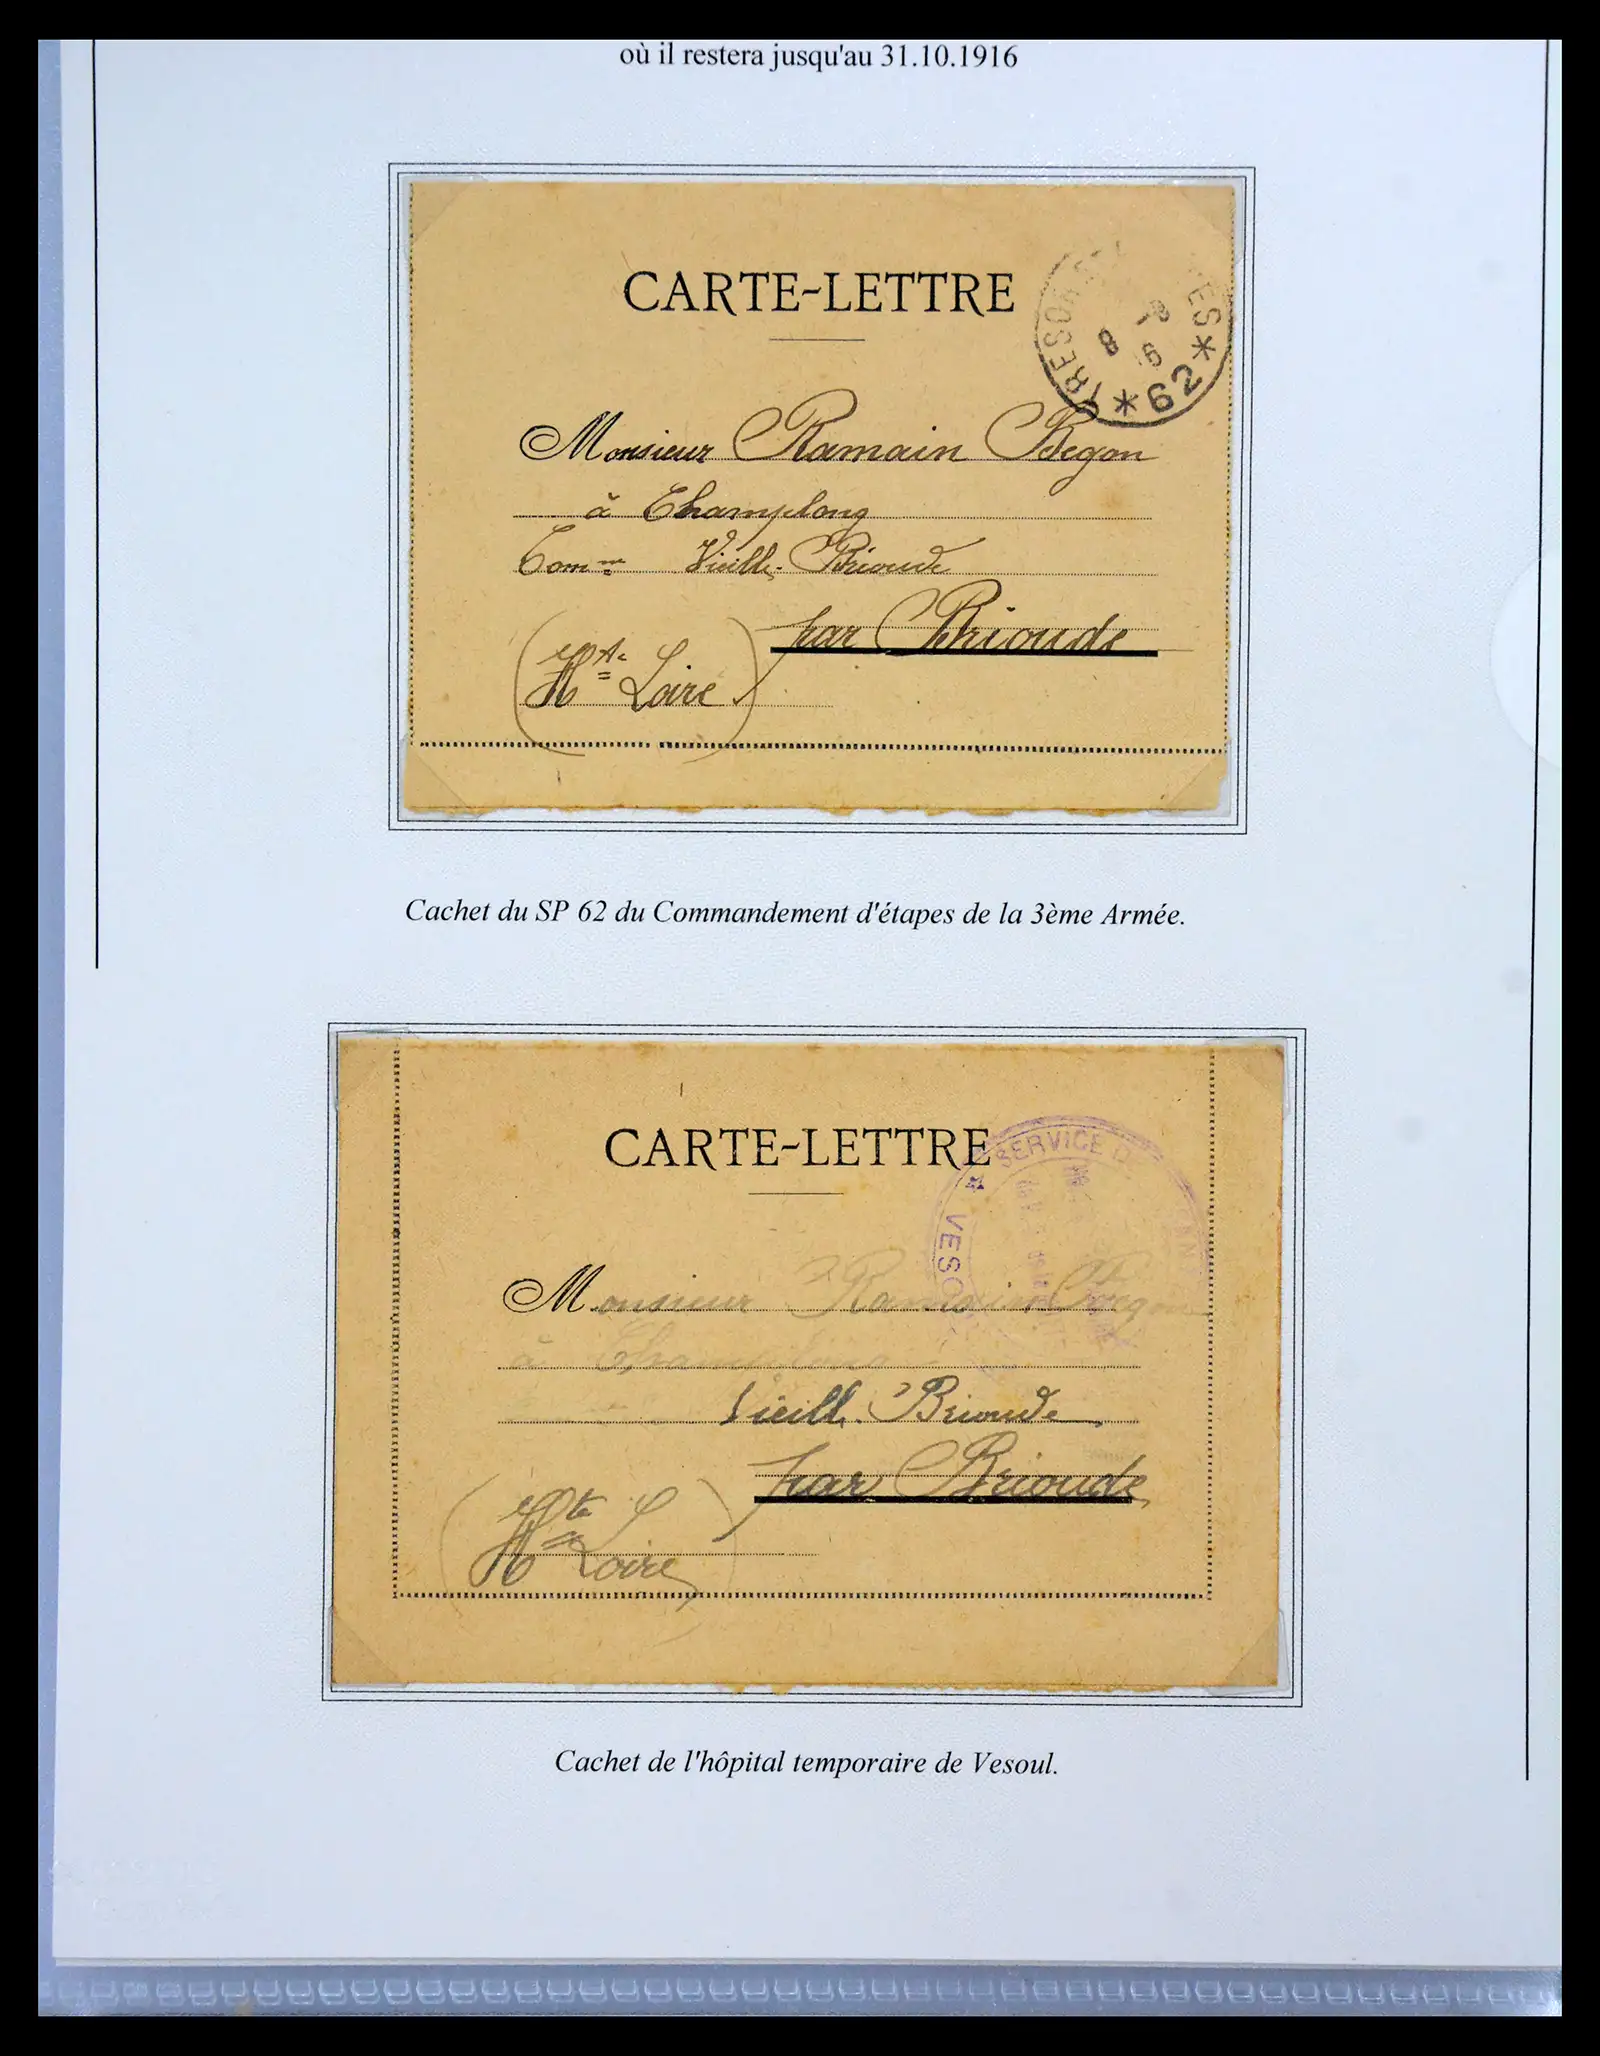 où il restera jusqu'au 31.10.1916
CARTE-LETTRE
TRESOR ES
8 - 8
16
* 62 *
Monsieur Ramain Begon
à Champlong
Comm^ne Vieille-Brioude
par Brioude
(Hte Loire)
Cachet du SP 62 du Commandement d'étapes de la 3ème Armée.
CARTE-LETTRE
* SERVICE D
VESO
Monsieur Ramain Begon
à Champlong
Vieille-Brioude
par Brioude
(Hte Loire)
Cachet de l'hôpital temporaire de Vesoul.